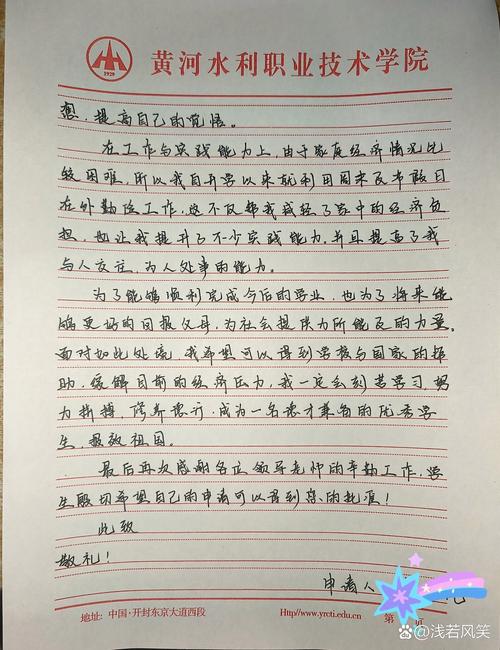 1929
黄河水利职业技术学院
想，提高自己的觉悟。
在工作与实践能力上，由于家庭经济情况比
较困难，所以我自开学以来就利用周末及节假日
在外勤俭工作，这不仅帮我减轻了家中的经济负
担，也让我提升了不少实践能力，并且提高了我
与人交往，为人处事的能力。
为了能够顺利完成今后的学业，也为了将来能
够更好的回报父母，为社会提供力所能及的力量。
面对如此处境，我希望可以得到学校与国家的帮
助，缓解目前的经济压力，我一定会刻苦学习，努
力拼搏，修养德行，成为一名德才兼备的优秀学
生，报效祖国。
最后再次感谢各位领导老师的辛勤工作，学
生殷切希望自己的申请可以得到您的批准！
此致
敬礼！
申请人
地址：中国·开封东京大道西段
Http//www.yrcti.edu.cn
第 页
百家号@浅若风笑